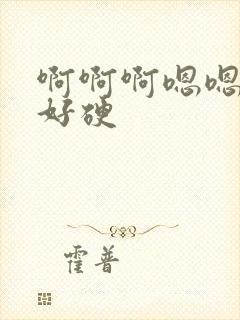 啊啊啊嗯嗯
好硬
霍普